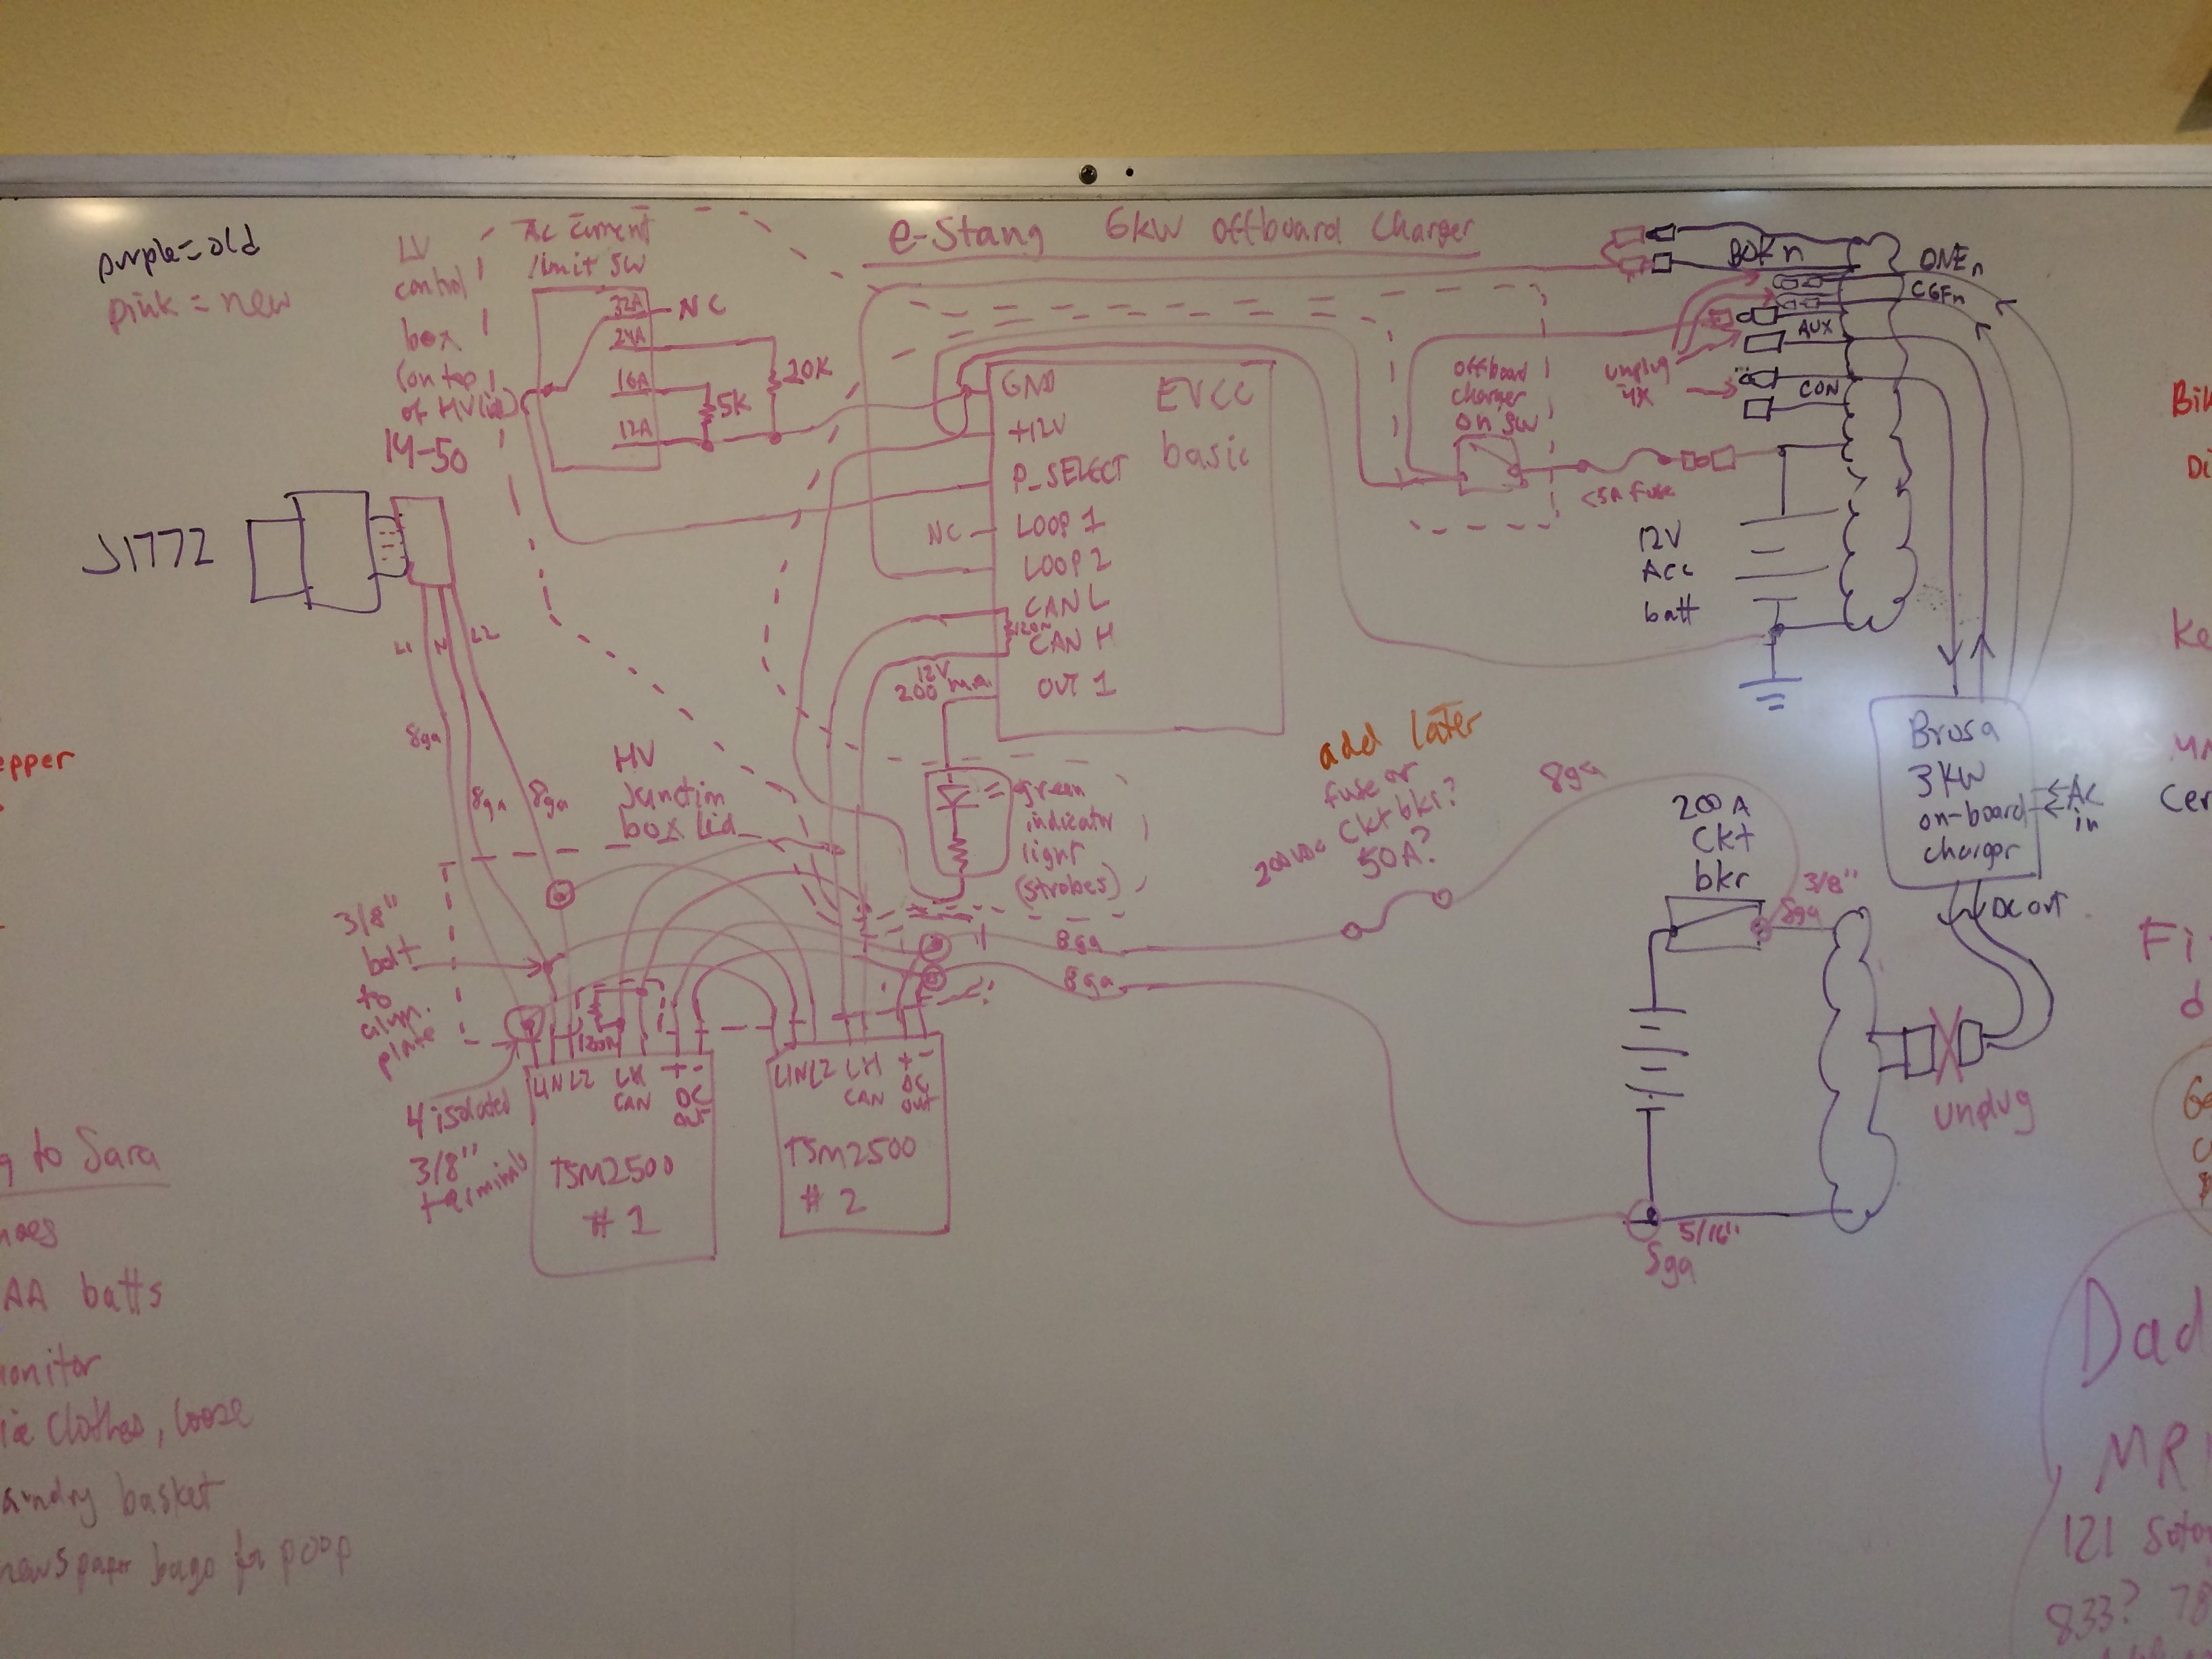 purple=old
pink = new
LV
control
box
(on top
of HV lid)
AC current
limit SW
32A
NC
24A
16A
12A
5K
20K
e-Stang 6kW offboard Charger
14-50
J1772
L1
N
L2
8ga
8ga
8ga
GND
+12V
P_SELECT
NC
LOOP 1
LOOP 2
CAN L
CAN H
OUT 1
EVCC
basic
12V
200 ma
offboard
charger
on SW
<5A fuse
unplug
4X
BOKn
ONEn
CGFn
AUX
CON
12V
Acc
batt
Brusa
3KW
on-board
charger
AC
in
DC out
HV
Junction
box lid
green
indicator
light
(strobes)
add later
fuse or
Ckt bkr?
200VDC
50A?
8ga
200A
Ckt
bkr
3/8"
8ga
8ga
8ga
3/8"
bolt
to
alum.
plate
4 isolated
3/8"
terminals
L1NL2
LH
CAN
+ -
DC
out
TSM2500
#1
L1NL2
LH
CAN
+ -
DC
out
TSM2500
# 2
unplug
5/16"
8ga
epper
g to Sara
AA batts
onitor
clothes, loose
laundry basket
newspaper bags for poop
Bik
Di
Ke
Cer
Fi
d
Dad
MRI
121
833? 78